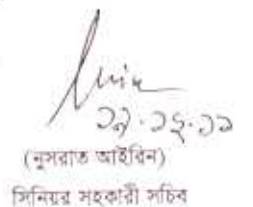 ২৯.১২.১৯
(নুসরাত আইরিন)
সিনিয়র সহকারী সচিব